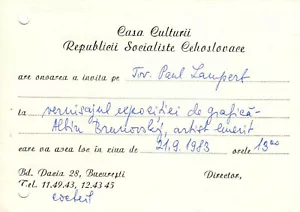 Casa Culturii
Republicii Socialiste Cehoslovace
are onoarea a invita pe Tov. Paul Lampert
la vernisajul expoziției de grafică-
Albin Brunovský, artist emerit
care va avea loc în ziua de 21.9.1983 orele 13⁰⁰
Bd. Dacia 28, București
Director,
Tel. 11.49.43, 12.43.45
cocteil